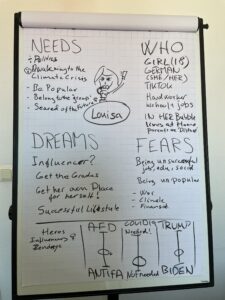 NEEDS
- Politics
- Awakening to the
Climate Crisis
- Be Popular
- Belong to the "group"
- Scared of the Future
Louisa
WHO
GIRL (18)
GERMAN
(SHE/HER)
TIKTOK
Hard worker
School & jobs
IN HER Bubble
Lives at Home
parents
DREAMS
Influencer?
Get the Grades
Get her own Place
for herself!
Successful Lifestyle
FEARS
Being unsuccessful
job, edu, social
Being unpopular
- War
- Climate
- Financial
Heros
Influencers &
Zendaya
AFD
COVID19
Needed!
TRUMP
ANTIFA
Not needed
BIDEN